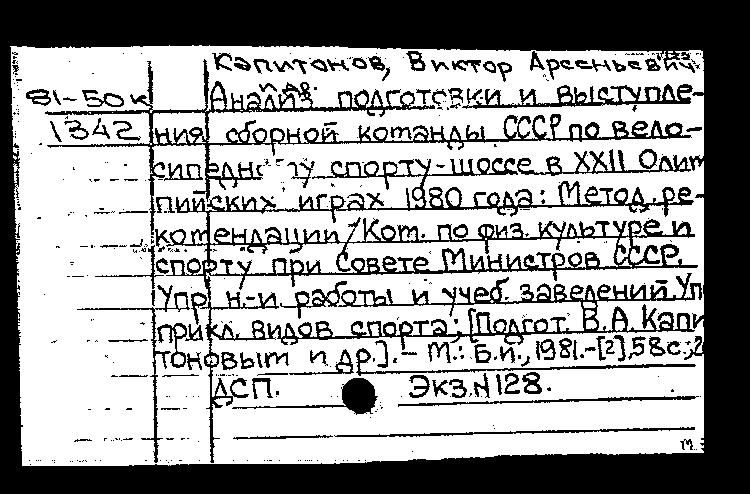 Капитонов, Виктор Арсеньевич
и др.
81-50к Анализ подготовки и выступле-
1342 ния сборной команды СССР по вело-
сипедному спорту-шоссе в XXII Олим
пийских играх 1980 года: Метод. ре-
комендации / Ком. по физ. культуре и
спорту при Совете Министров СССР.
Упр. н.-и. работы и учеб. заведений. Уп
прикл. видов спорта; [Подгот. В.А. Капи
тоновым и др.]. - М.: Б.и., 1981. - [2], 58с.; 2
ДСП. Экз. N 128.